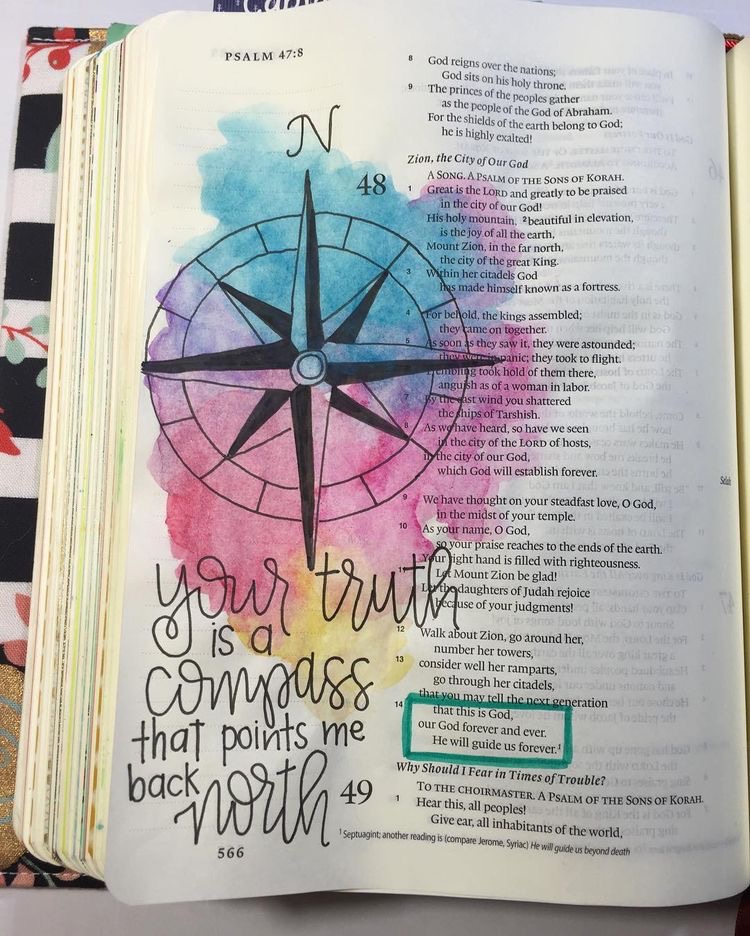 PSALM 47:8
N
your truth
is a
compass
that points me
back
north
566
8 God reigns over the nations;
God sits on his holy throne.
9 The princes of the peoples gather
as the people of the God of Abraham.
For the shields of the earth belong to God;
he is highly exalted!
Zion, the City of Our God
48 A SONG. A PSALM OF THE SONS OF KORAH.
1 Great is the LORD and greatly to be praised
in the city of our God!
His holy mountain, 2 beautiful in elevation,
is the joy of all the earth,
Mount Zion, in the far north,
the city of the great King.
3 Within her citadels God
has made himself known as a fortress.
4 For behold, the kings assembled;
they came on together.
5 As soon as they saw it, they were astounded;
they were in panic; they took to flight.
Trembling took hold of them there,
anguish as of a woman in labor.
7 By the east wind you shattered
the ships of Tarshish.
8 As we have heard, so have we seen
in the city of the LORD of hosts,
in the city of our God,
which God will establish forever. Selah
9 We have thought on your steadfast love, O God,
in the midst of your temple.
10 As your name, O God,
so your praise reaches to the ends of the earth.
Your right hand is filled with righteousness.
11 Let Mount Zion be glad!
Let the daughters of Judah rejoice
because of your judgments!
12 Walk about Zion, go around her,
number her towers,
13 consider well her ramparts,
go through her citadels,
that you may tell the next generation
14 that this is God,
our God forever and ever.
He will guide us forever.1
Why Should I Fear in Times of Trouble?
49 TO THE CHOIRMASTER. A PSALM OF THE SONS OF KORAH.
1 Hear this, all peoples!
Give ear, all inhabitants of the world,
1 Septuagint; another reading is (compare Jerome, Syriac) He will guide us beyond death